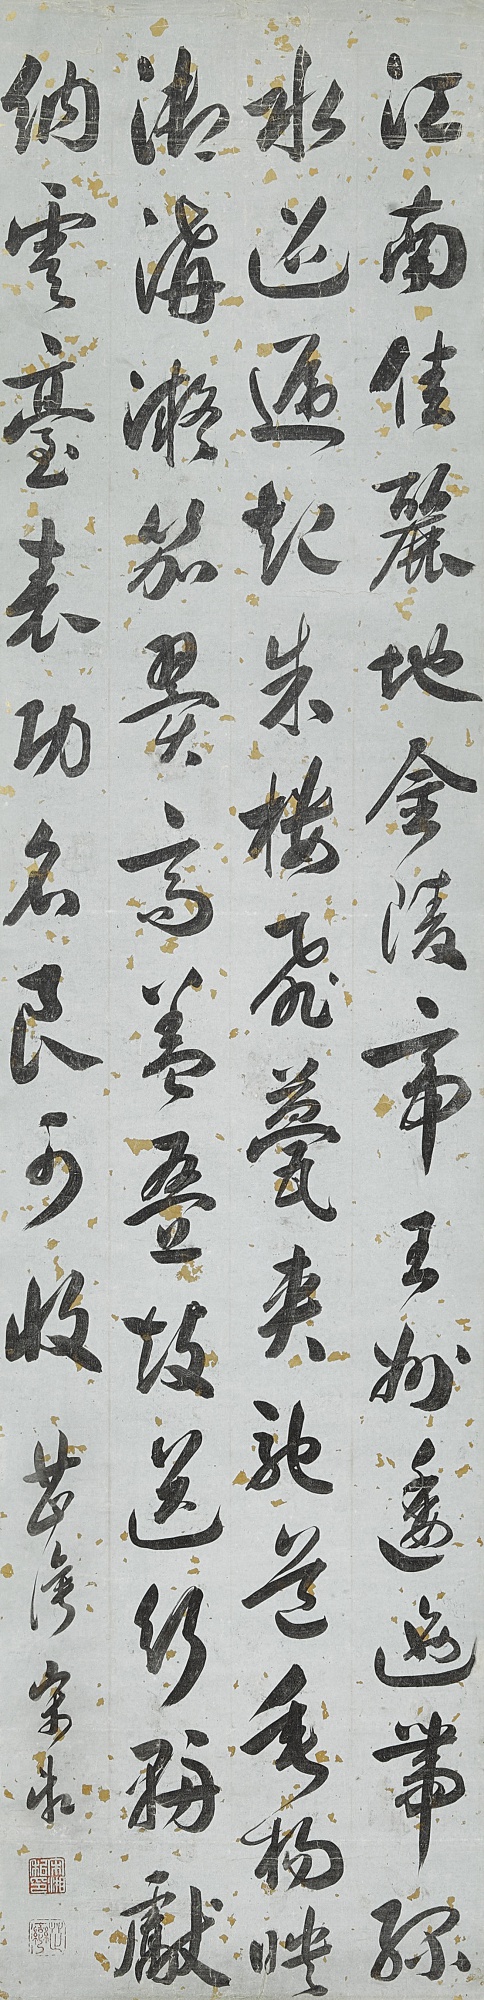 江南佳麗地金陵帝王州逶迤帶綠
水迢遞起朱樓飛甍夾馳道垂楊映
御溝凝笳翼高蓋疊鼓送行輈獻
納雲臺表功名良可收
芷灣宋湘